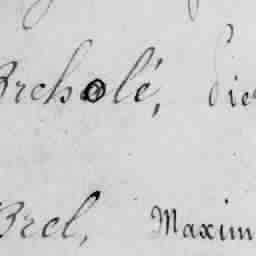 Brcholé, Pie
Brel, Maxim